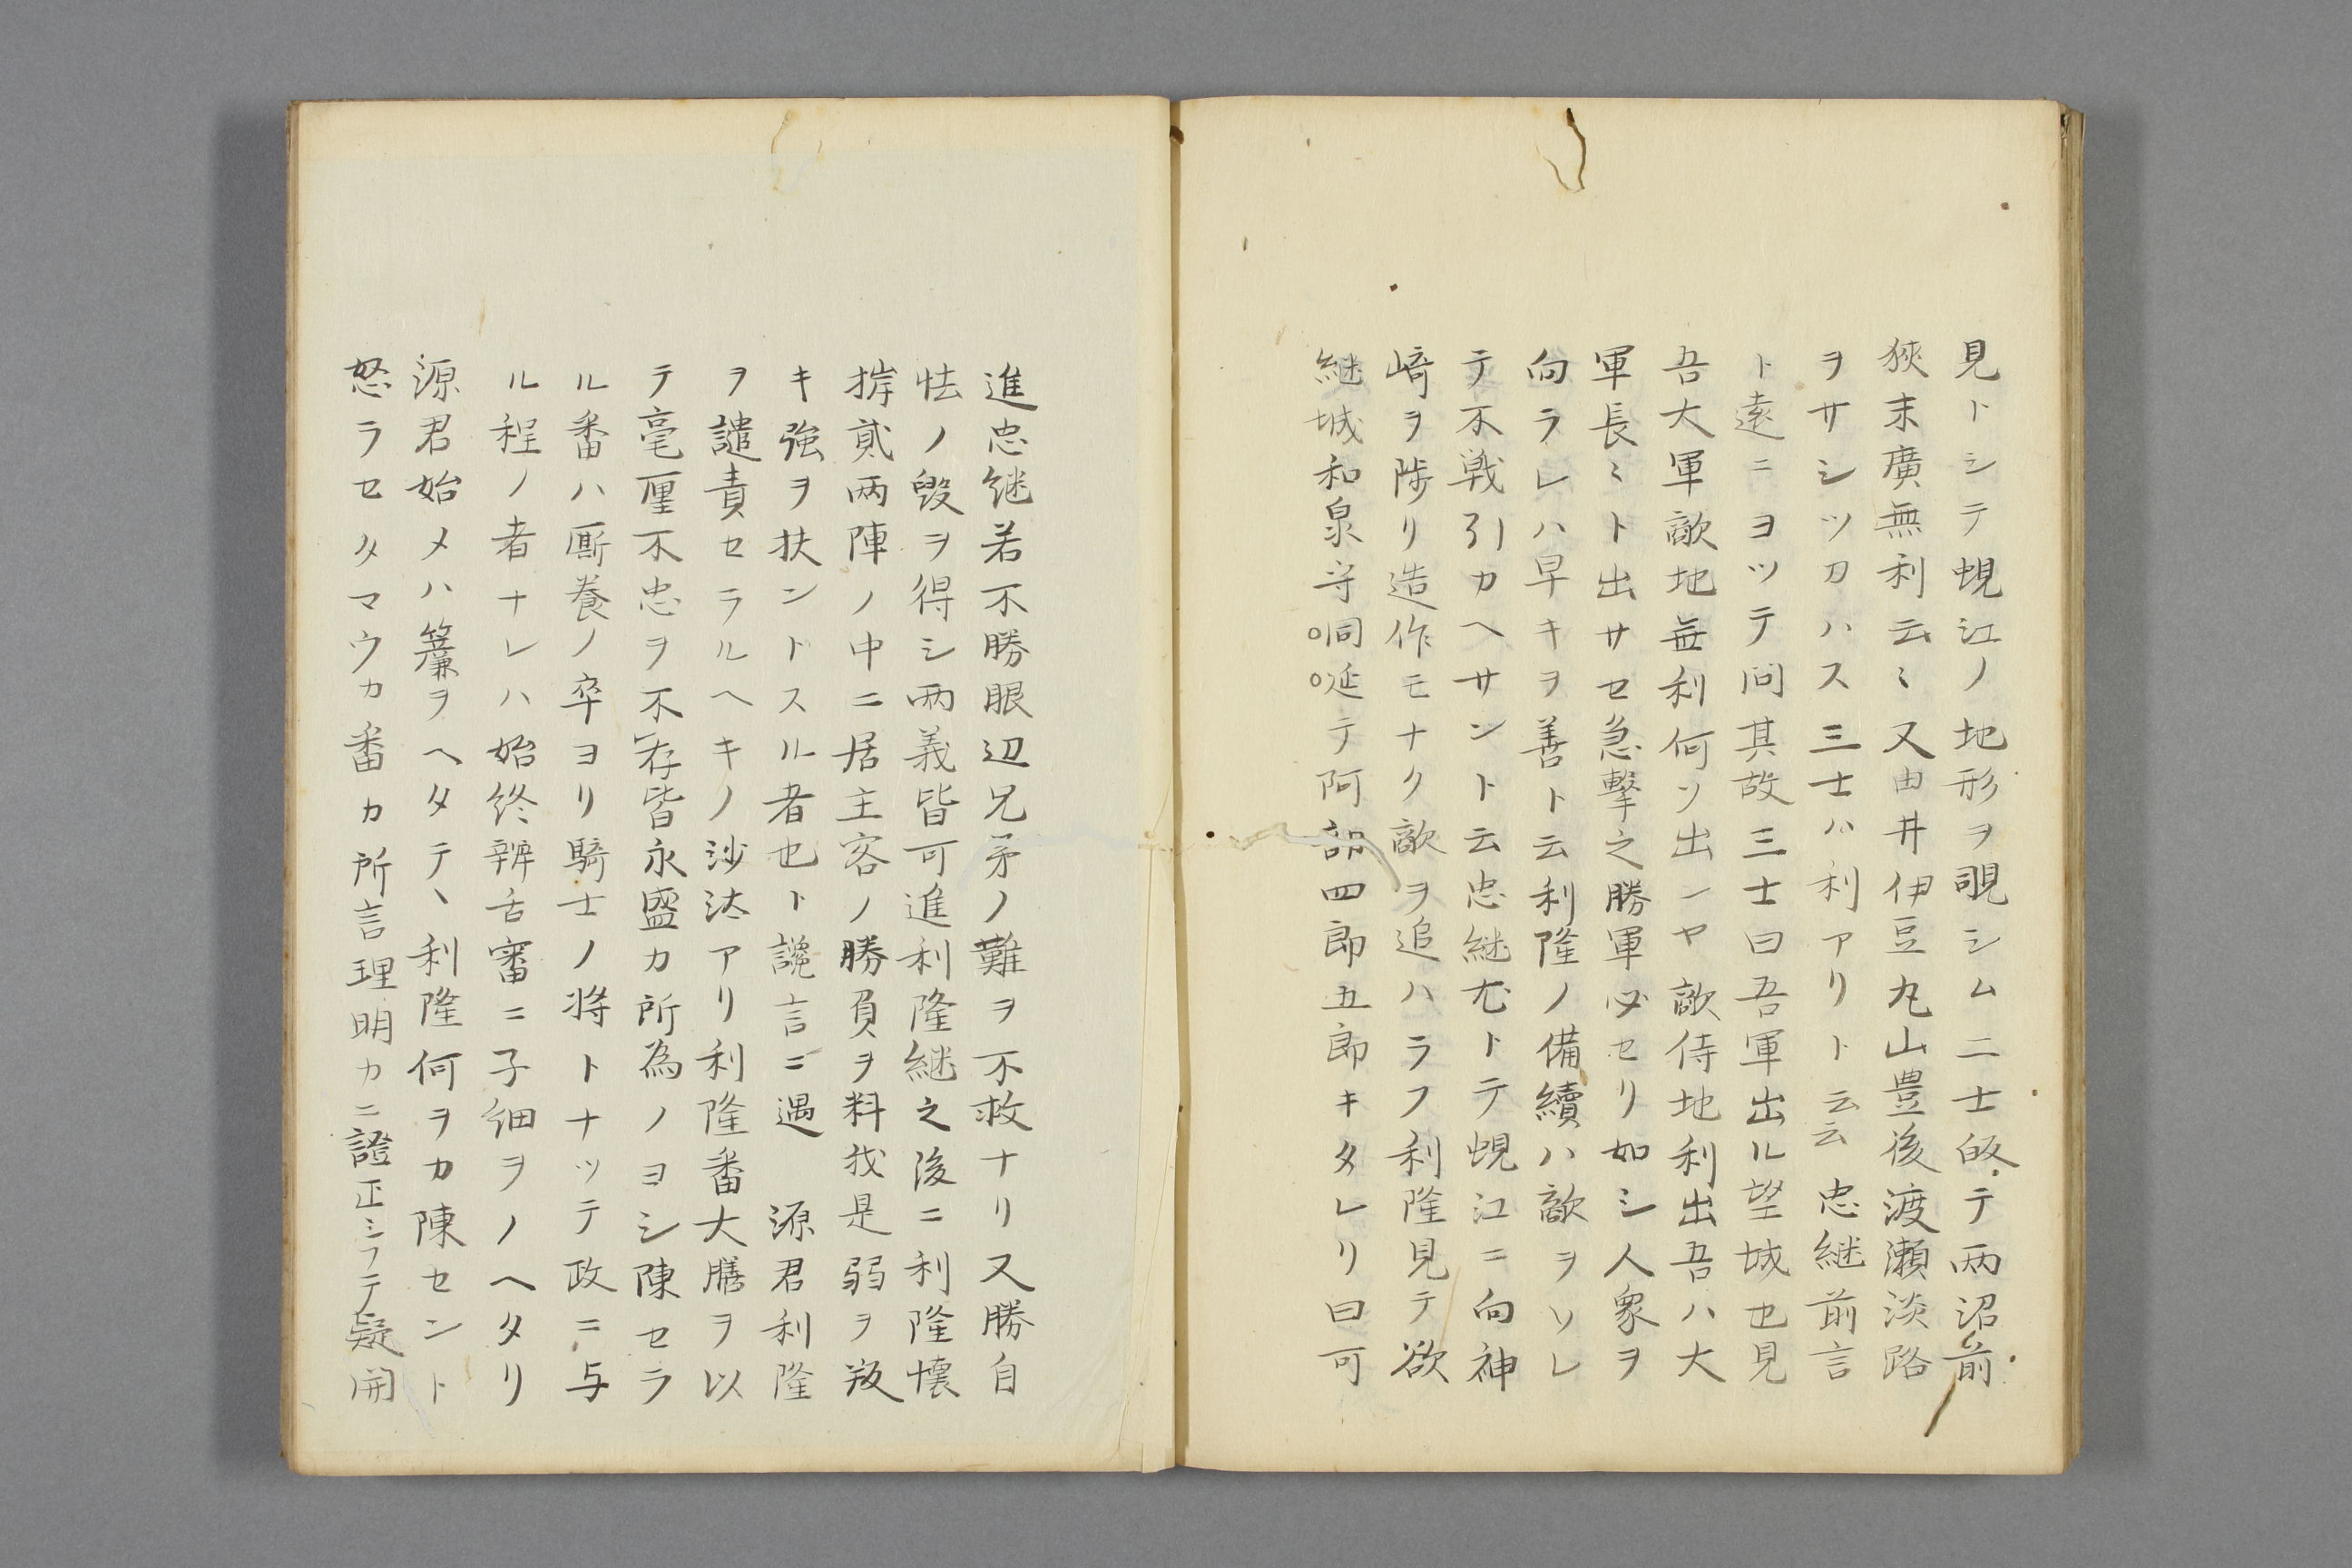 見トシテ蜆江ノ地形ヲ覗シム二士皈テ両沼前
狹末廣無利云ミ又由井伊豆丸山豊後渡瀬淡路
ヲサシツカハス三士ハ利アリト云云忠継前言
ト遠ニヨツテ問其故三士曰吾軍出ル望城也見
吾大軍敵地無利何ソ出ンヤ敵侍地利出吾ハ大
軍長ミト出サセ急撃之勝軍必セリ如シ人衆ヲ
向ラレハ早キヲ善ト云利隆ノ備續ハ敵ヲソレ
テ不戦引カヘサントス忠継尤トテ蜆江ニ向神
﨑ヲ陟リ造作モナク敵ヲ追ハラフ利隆見テ欲
継城和泉守○峒○延テ阿部四郎五郎キタレリ曰可
進忠継若不勝眼辺兄弟ノ難ヲ不救ナリ又勝自
怯ノ毀ヲ得シ両義皆可進利隆継之後ニ利隆懐
擀貳両陣ノ中ニ居主客ノ勝負ヲ料我是弱ヲ叛
キ強ヲ扶ントスル者也ト讒言ニ遇 源君利隆
ヲ譴責セラルヘキノ沙汰アリ利隆番大膳ヲ以
テ毫厘不忠ヲ不存皆永盛カ所為ノヨシ陳セラ
ル番ハ厮養ノ卒ヨリ騎士ノ将トナッテ政ニ与
ル程ノ者ナレハ始終辨舌審ニ子細ヲノヘタリ
源君始メハ簾ヲヘタテ、利隆何ヲカ陳セント
怒ラセタマウカ番カ所言理明カニ證正シフテ疑開